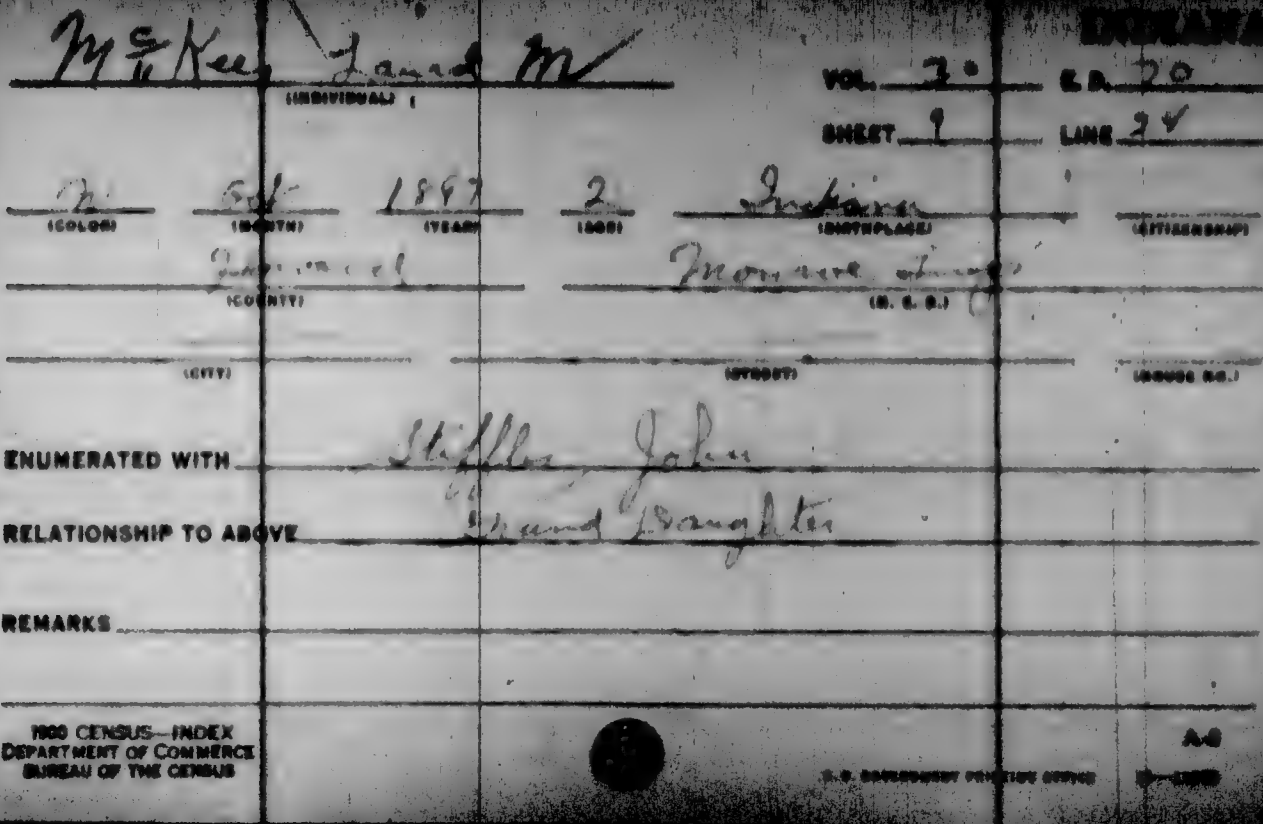 INDIANA
McKee, M
(INDIVIDUAL)
VOL. 30 E. D. 20
SHEET 9 LINE
Oct 1897 2 Indiana
(COLOR) (MONTH) (YEAR) (AGE) (BIRTHPLACE) (CITIZENSHIP)
Monroe
(COUNTY) (M. C. D.)
(CITY) (STREET) (HOUSE NO.)
ENUMERATED WITH Stiffler, John
RELATIONSHIP TO ABOVE Grand Daughter
REMARKS
1900 CENSUS—INDEX
DEPARTMENT OF COMMERCE
BUREAU OF THE CENSUS
A-8
U. S. GOVERNMENT PRINTING OFFICE